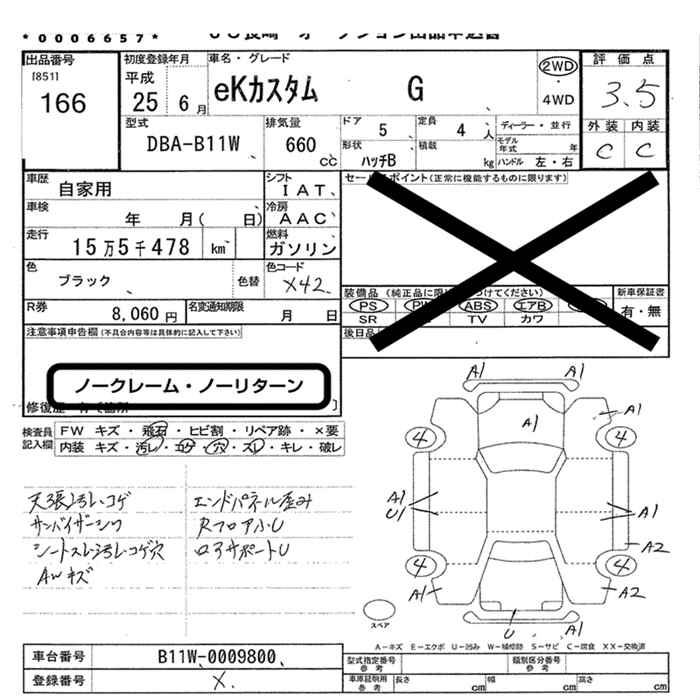 *0006657*
出品番号 初度登録年月 車名・グレード 評価点
[851] 平成 2WD
166 25 6月 eKカスタム G ・4WD 3.5
型式 排気量 ドア 定員 ディーラー・並行 外装 内装
DBA-B11W 660 cc 5 4 人 モデル年式 年 C C
形状 積載
ハッチB kg ハンドル 左・右
車歴 シフト セールスポイント(正常に機能するものに限ります)
自家用 IAT
車検 冷房
年 月( 日) AAC
走行 燃料
15万5千478 km ガソリン
色 色コード 装備品(純正品に限り つけてください) 新車保証書
ブラック 色替 X42 PS PW ABS エアB 有・無
R券 名変通知期限 SR TV カワ
8,060円 月 日 後日品
注意事項申告欄(不具合内容等は具体的に記入して下さい)
ノークレーム・ノーリターン
検査員 FW キズ・飛石・ヒビ割・リペア跡・×要
記入欄 内装 キズ・汚レ・コゲ・穴・スレ・キレ・破レ
天張汚レコゲ エンドパネル歪み
サンバイザーシワ RフロアハU
シートスレ汚レコゲ穴 ロアサポートU
AWキズ
A1
A1 A1
4 4
A1 U1 A1
A2
4 4
A1 A2
U A1
スペア
A-キズ E-エクボ U-凹み W-補修跡 S-サビ C-腐食 XX-交換済
車台番号 B11W-0009800 型式指定番号 参考 類別区分番号 参考
登録番号 X. 車庫証明用 参考 長さ cm 幅 cm 高さ cm